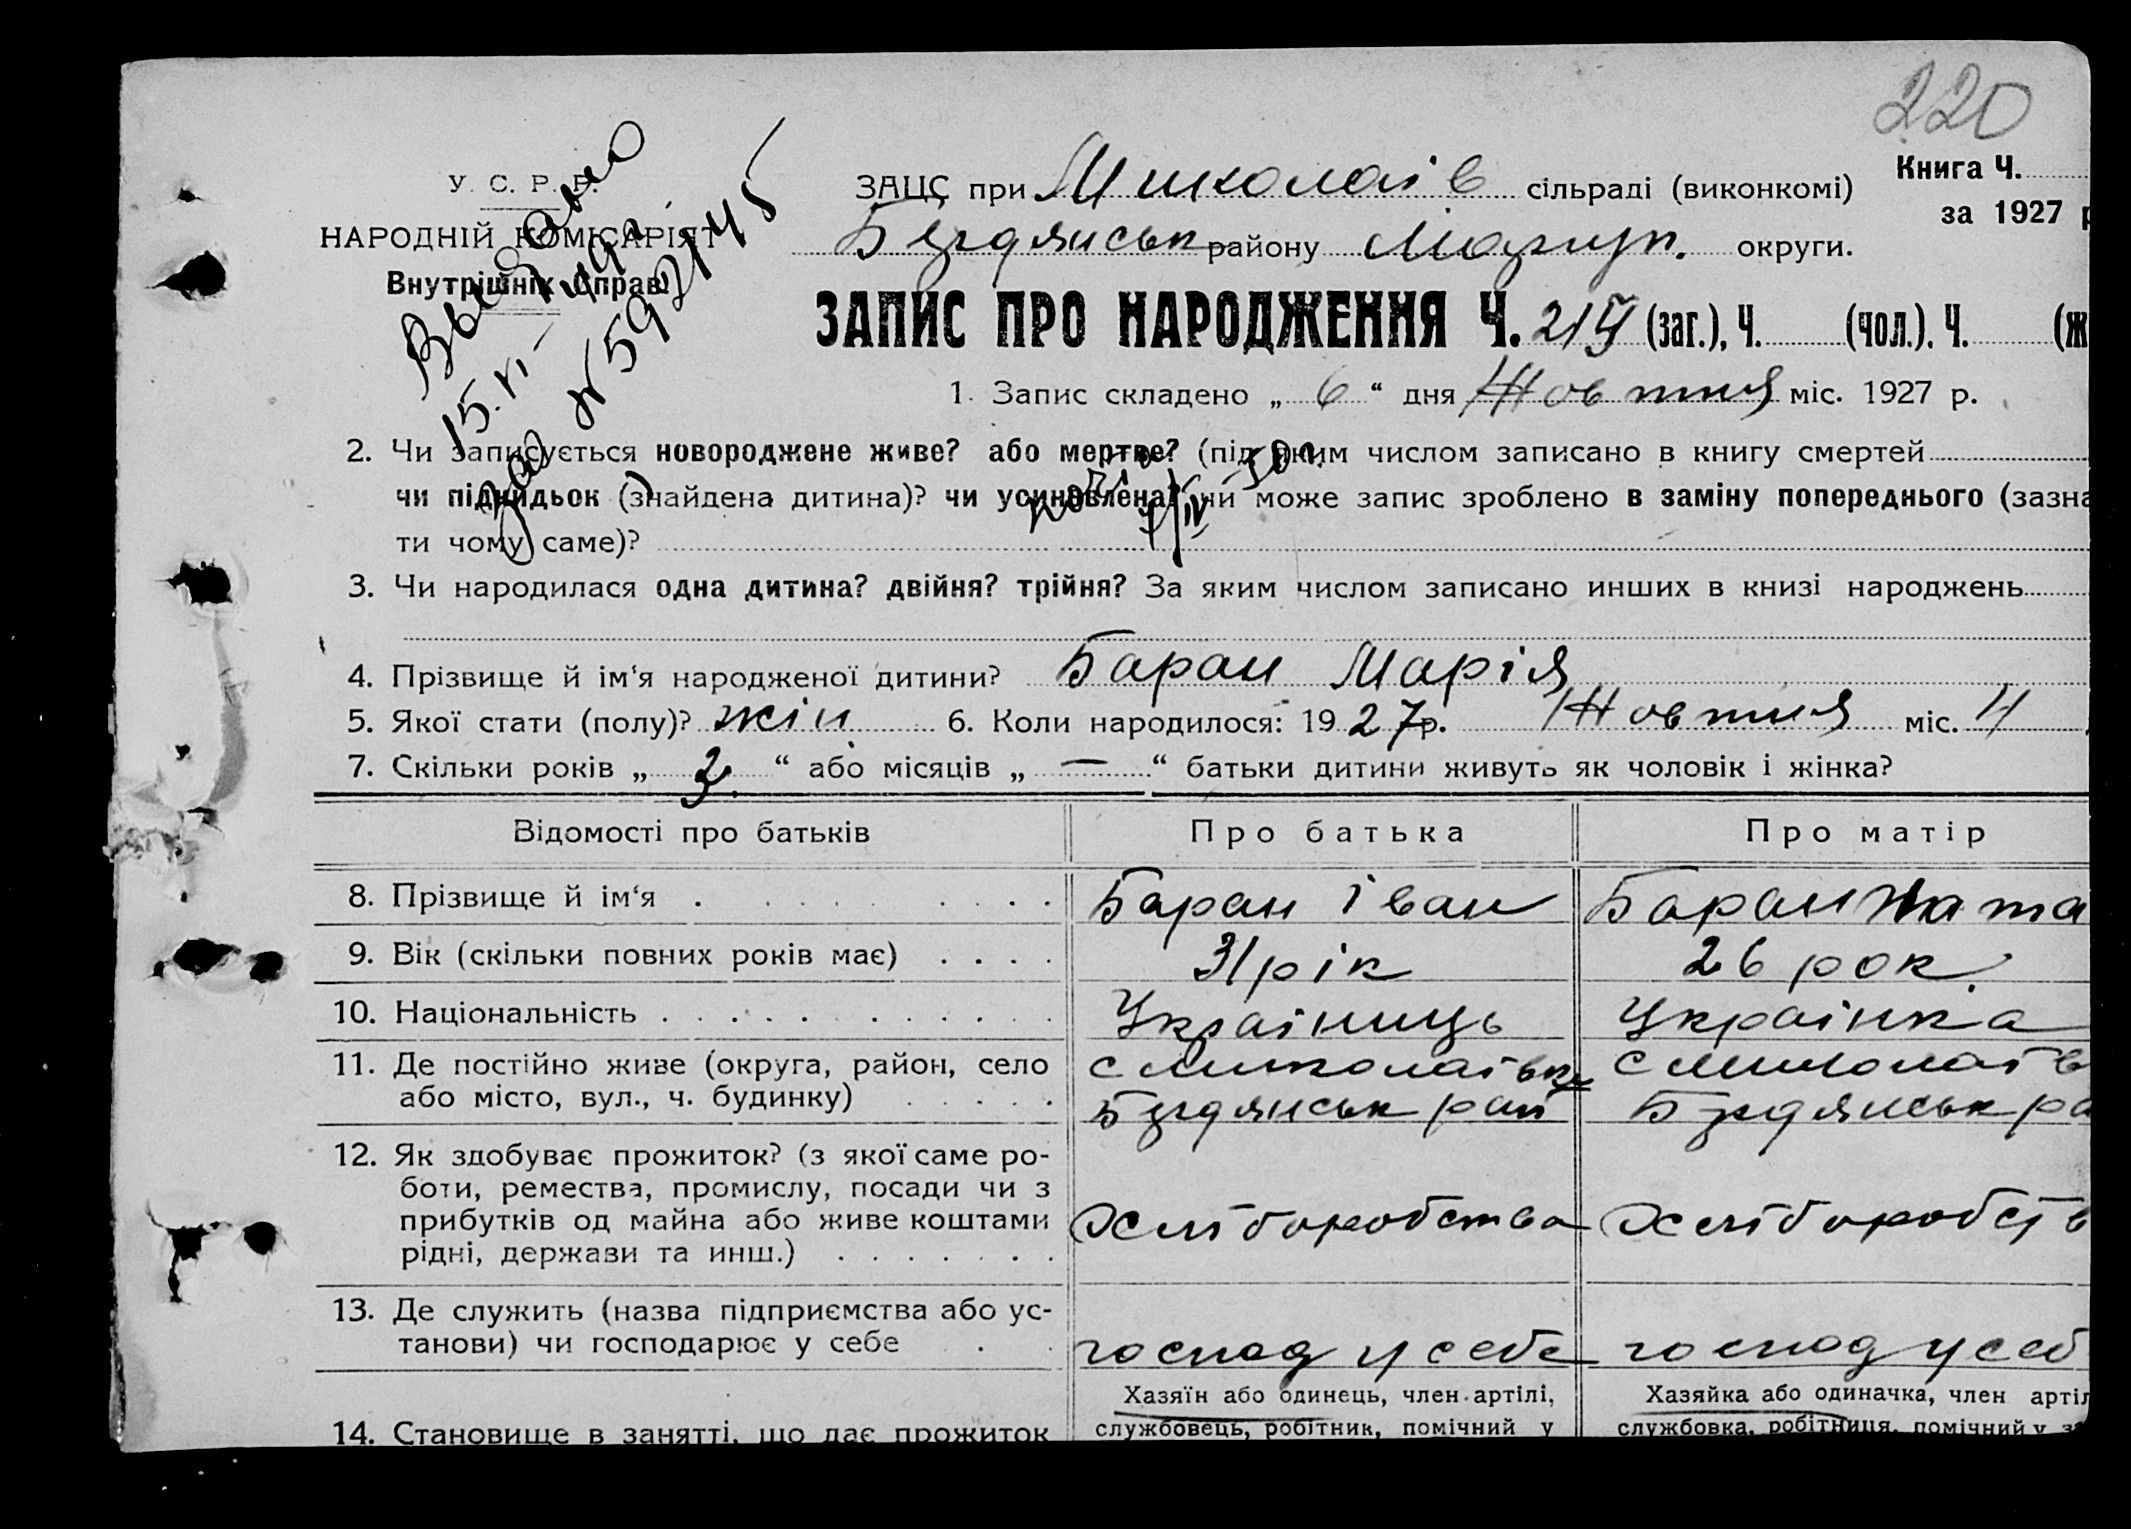 220
У. С. Р. Р.
НАРОДНІЙ КОМІСАРІЯТ
Внутрішніх Справ
Выдано
ЗАЦС при Миколаїв сільраді (виконкомі)
району Маріуп. округи.
Книга Ч.
за 1927 р
ЗАПИС ПРО НАРОДЖЕННЯ Ч. 219 (заг.), Ч. (чол.), Ч. (ж
1. Запис складено „ 6 “ дня Жовтня міс. 1927 р.
2. Чи записується новороджене живе? або мертве? (під яким числом записано в книгу смертей
чи підкидьок (знайдена дитина)? чи усиновлена? чи може запис зроблено в заміну попереднього (зазна
ти чому саме)?
3. Чи народилася одна дитина? двійня? трійня? За яким числом записано инших в книзі народжень
4. Прізвище й ім‘я народженої дитини? Баран Марія
5. Якої стати (полу)? жін. 6. Коли народилося: 1927 р. Жовтня міс. 4
7. Скільки років „ “ або місяців „ — “ батьки дитини живуть як чоловік і жінка?
Відомості про батьків Про батька Про матір
8. Прізвище й ім‘я Баран Іван Баран Ната
9. Вік (скільки повних років має) 31 рік 26 рок
10. Національність Україниць Українка
11. Де постійно живе (округа, район, село с Миколаївки с Миколаїв
або місто, вул., ч. будинку)
12. Як здобуває прожиток? (з якої саме ро-
боти, ремества, промислу, посади чи з
прибутків од майна або живе коштами Хліборобства Хліборобств
рідні, держави та инш.)
13. Де служить (назва підприємства або ус-
танови) чи господарює у себе господ у себе господ у себ
Хазяїн або одинець, член артілі, Хазяйка або одиначка, член артіл
14. Становище в занятті, що дає прожиток службовець, робітник, помічний у службовка, робітниця, помічний у за